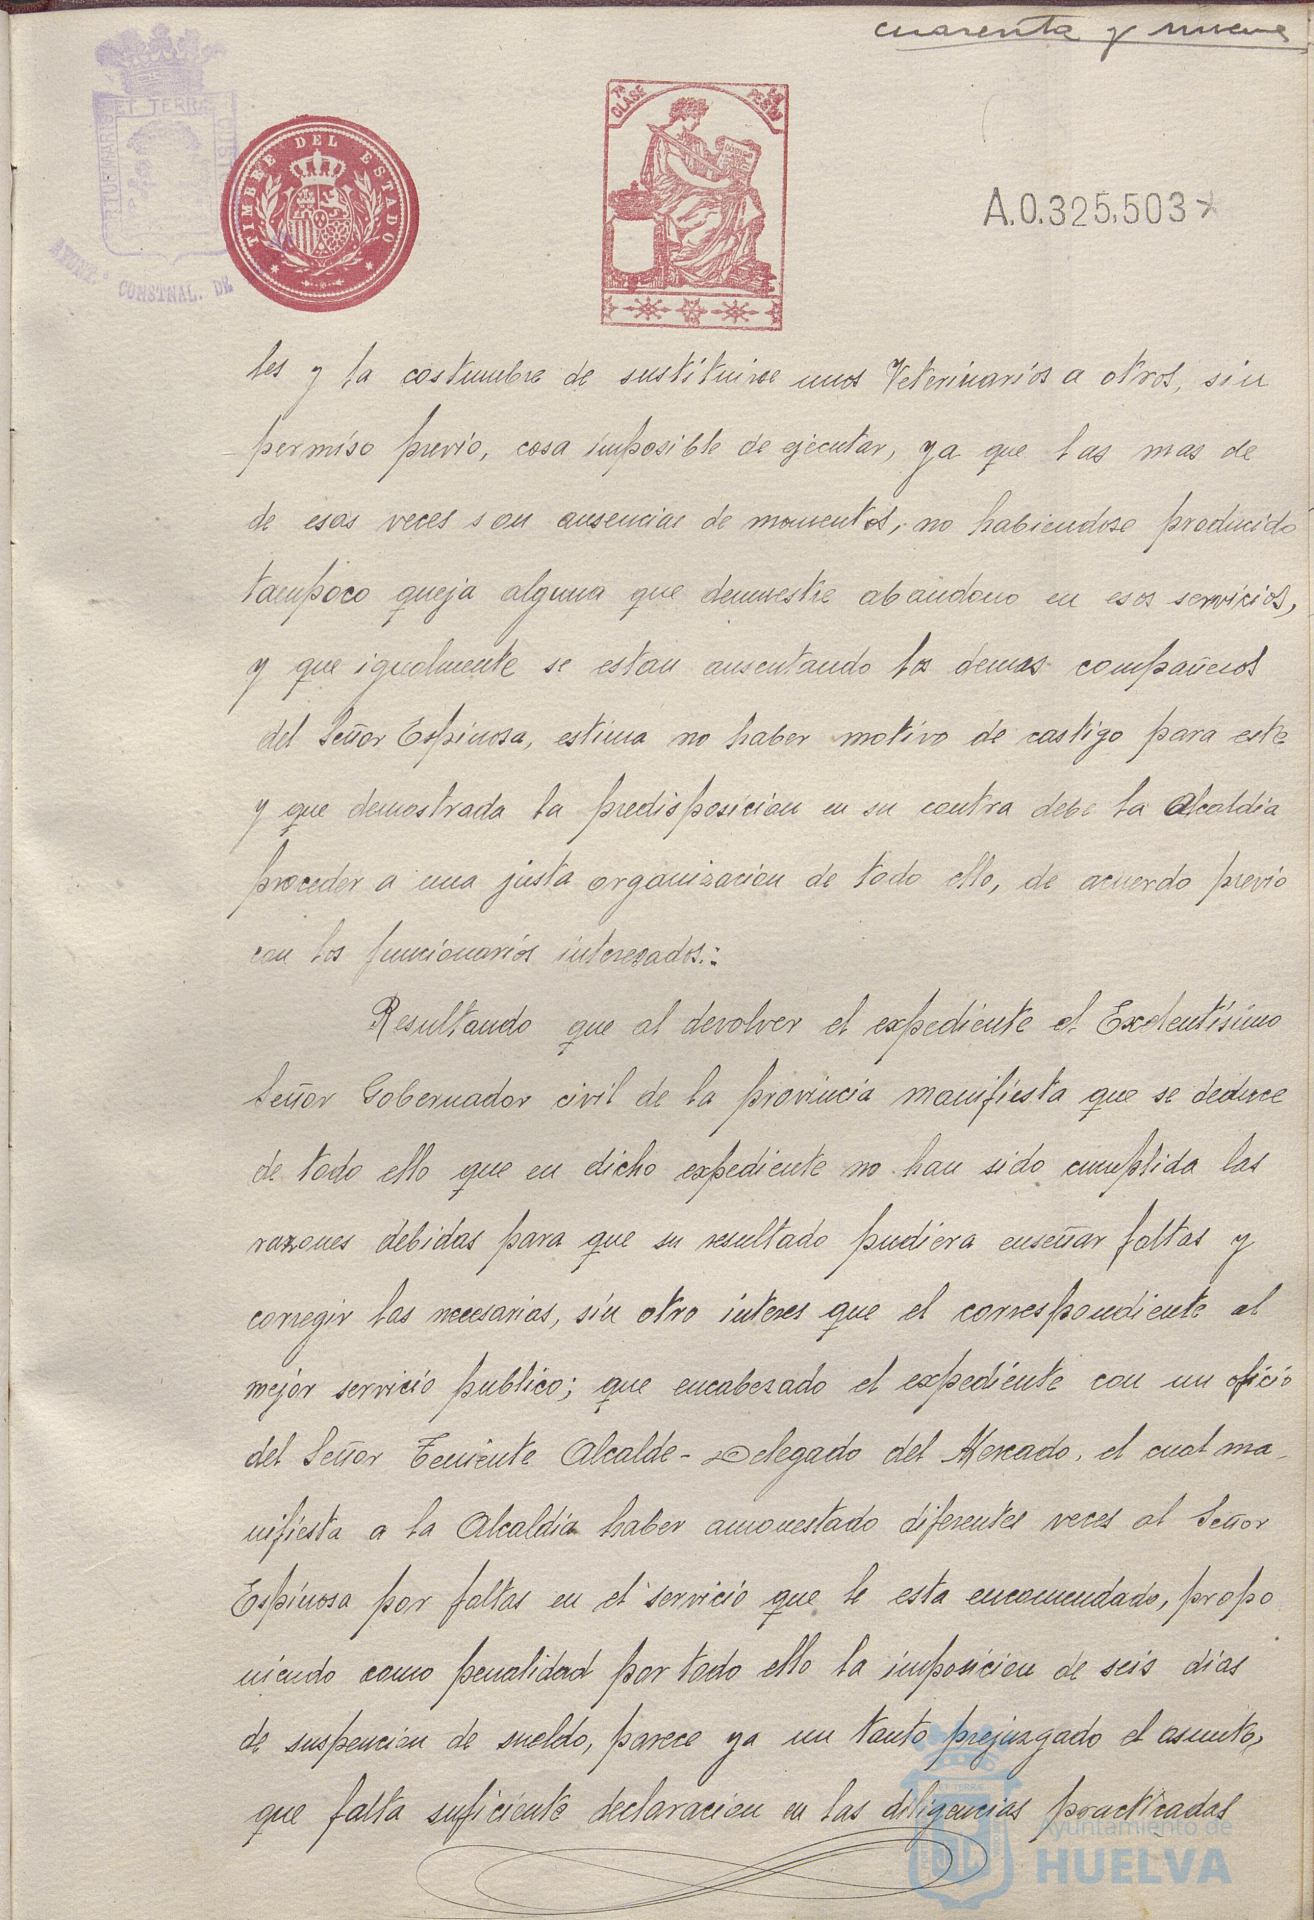 cuarenta y nueve
ET TERRÆ
PORTUS MARIS
CUSTODIA
AYUNT.º CONSTNAL. DE
TIMBRE DEL ESTADO
7ª CLASE
PESETAS
A.0.325.503
les y la costumbre de sustituirse unos Veterinarios a otros, sin
permiso previo, cosa imposible de ejecutar, ya que las mas de
de esas veces son ausencias de momentos, no habiendose producido
tampoco queja alguna que demuestre abandono en esos servicios,
y que igualmente se estan ausentando los demas compañeros
del Señor Espinosa, estima no haber motivo de castigo para este
y que demostrada la predisposicion en su contra debe la Alcaldia
proceder a una justa organizacion de todo ello, de acuerdo previo
con los funcionarios interesados.:
Resultando que al devolver el expediente el Exelentísimo
Señor Gobernador civil de la provincia manifiesta que se deduce
de todo ello que en dicho expediente no han sido cumplida las
razones debidas para que su resultado pudiera enseñar faltas y
corregir las necesarias, sin otro interes que el correspondiente al
mejor servicio publico; que encabesado el expediente con un oficio
del Señor Teniente Alcalde-Delegado del Mercado, el cual ma-
nifiesta a la Alcaldia haber amonestado diferentes veces al Señor
Espinosa por faltas en el servicio que le esta encomendado, propo
niendo como penalidad por todo ello la imposicion de seis dias
de suspencion de sueldo, parece ya un tanto prejuzgado el asunto,
que falta suficiente declaracion en las diligencias practicadas
Ayuntamiento de
HUELVA